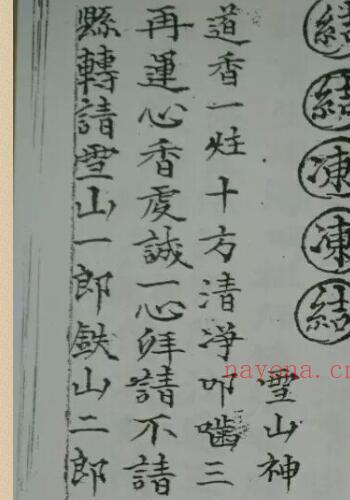 結結凍凍結
雪山神
道香一炷十方清净叩嚙三
再運心香虔誠一心拜請不請
縣轉請雪山一郎鉄山二郎
nayona.cn